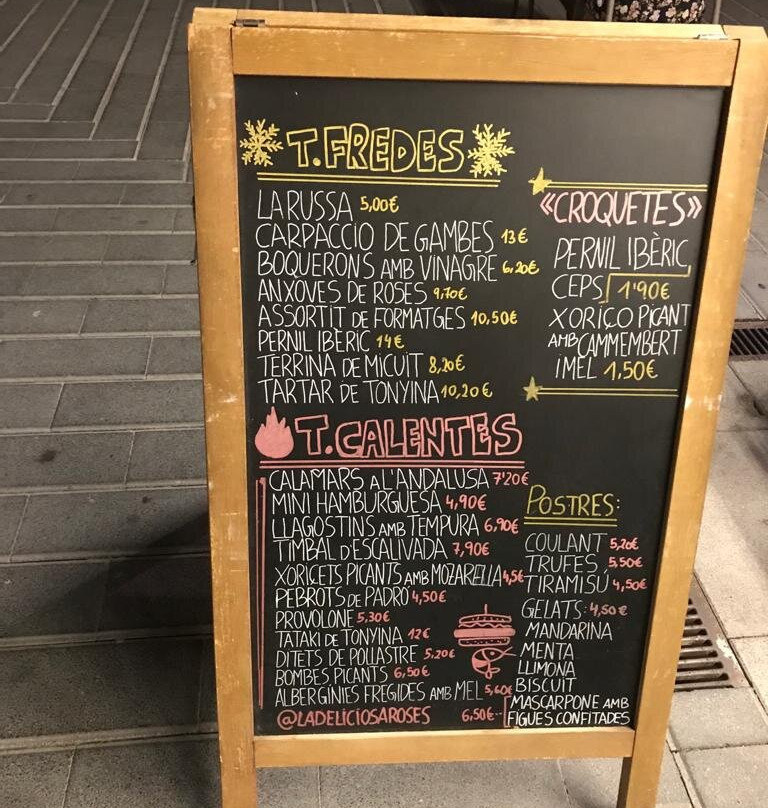 T.FREDES
LA RUSSA 5,00€
CARPACCIO DE GAMBES 13€
BOQUERONS AMB VINAGRE 6,20€
ANXOVES DE ROSES 9,70€
ASSORTIT DE FORMATGES 10,50€
PERNIL IBÈRIC 14€
TERRINA DE MICUIT 8,20€
TARTAR DE TONYINA 10,20€
«CROQUETES»
PERNIL IBÈRIC
CEPS 1'90€
XORIÇO PICANT
AMB CAMMEMBERT
I MEL 1,50€
T.CALENTES
CALAMARS A L'ANDALUSA 7'20€
MINI HAMBURGUESA 4,90€
LLAGOSTINS AMB TEMPURA 6,90€
TIMBAL D'ESCALIVADA 7,90€
XORICETS PICANTS AMB MOZARELLA 4,5€
PEBROTS DE PADRÓ 4,50€
PROVOLONE 5,30€
TATAKI DE TONYINA 12€
DITETS DE POLLASTRE 5,20€
BOMBES PICANTS 6,50€
ALBERGINIES FREGIDES AMB MEL 5,60€
@LADELICIOSAROSES
POSTRES:
COULANT 5,20€
TRUFES 5,50€
TIRAMISÚ 4,50€
GELATS: 4,50€
MANDARINA
MENTA
LLIMONA
BISCUIT
MASCARPONE AMB
6,50€ FIGUES CONFITADES